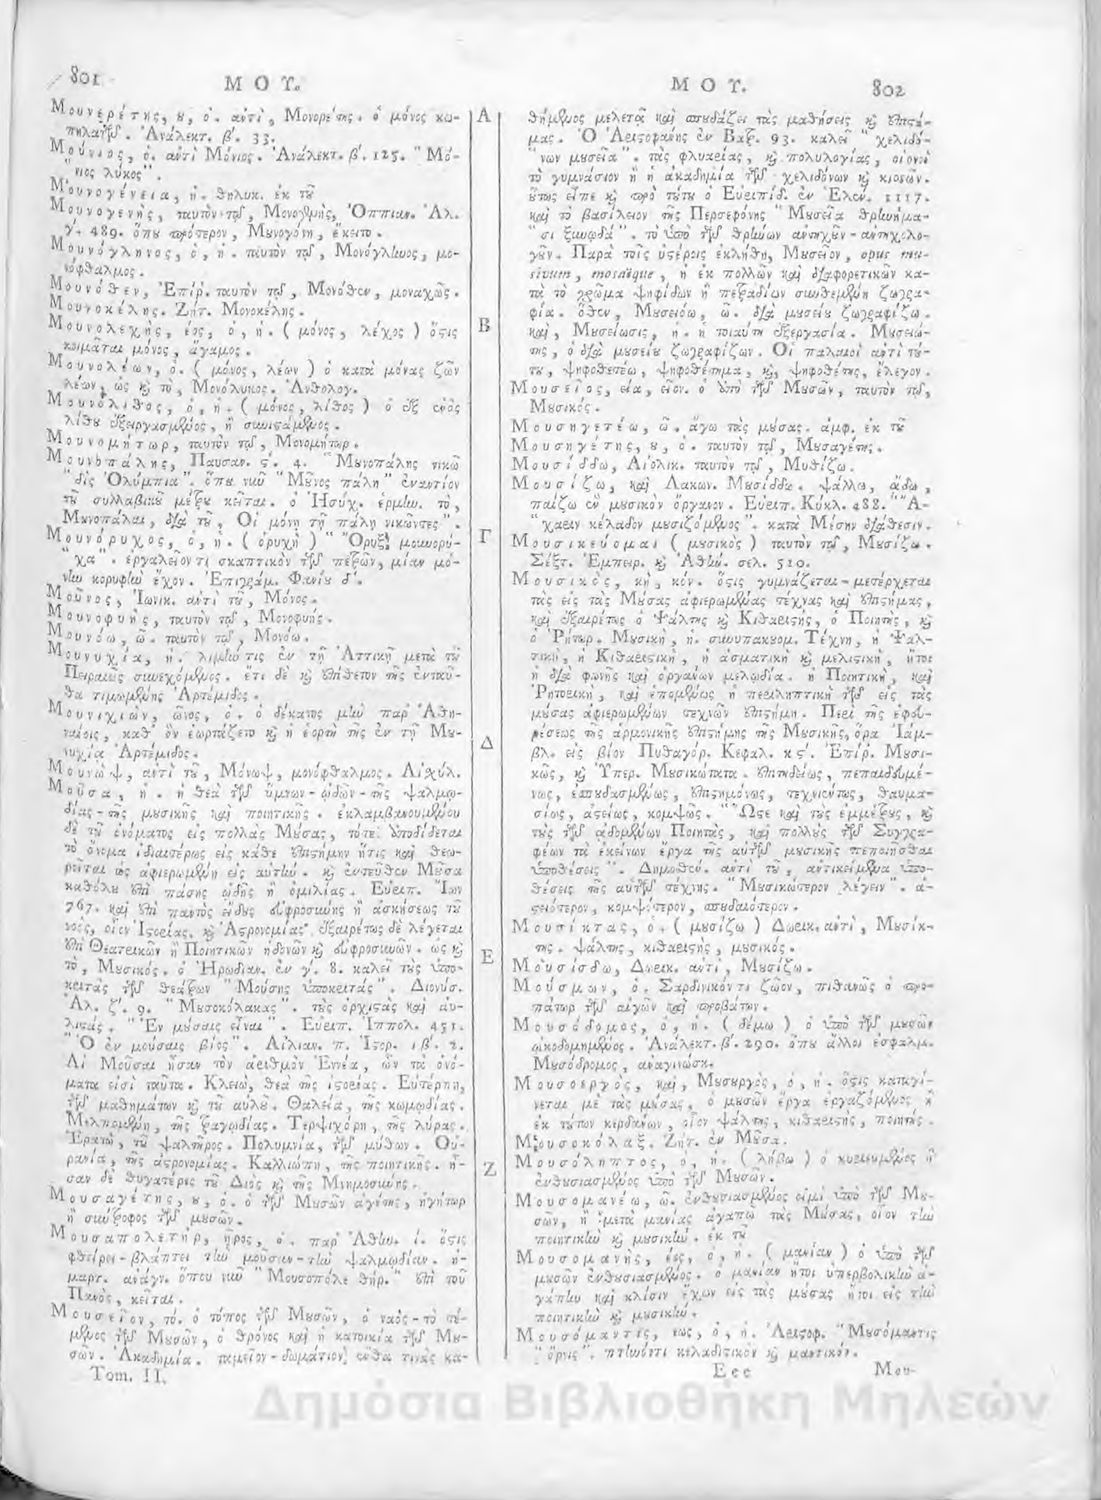 801 ΜΟΥ.
Μουνερέτης, ου, ὁ. αὐτὶ, Μονορέτης. ὁ μόνος κω-
πηλατῶν. Ἀνάλεκτ. β'. 33.
Μούνιος, ὁ. αὐτὶ Μόνιος. Ἀνάλεκτ. β'. 125. "Μό-
"νιος λύκος".
Μουνογένεια, ἡ. θηλυκ. ἐκ τοῦ
Μουνογενὴς, ταυτὸν τῷ, Μονογενὴς, Ὀππιαν. Ἁλ.
γ'. 489. ὅπου πρότερον, Μουνογόνη, ἔκειτο.
Μουνόγληνος, ὁ, ἡ. ταυτὸν τῷ, Μονόγληνος, μο-
νόφθαλμος.
Μουνόθεν, Ἐπίρ. ταυτὸν τῷ, Μονόθεν, μοναχῶς.
Μουνοκέλης. Ζήτ. Μονοκέλης.
Μουνολεχὴς, έος, ὁ, ἡ. (μόνος, λέχος) ὅστις
κοιμᾶται μόνος, ἄγαμος.
Μουνολέων, ὁ. (μόνος, λέων) ὁ κατὰ μόνας ζῶν
λέων, ὡς καὶ τὸ, Μονόλυκος. Ἀνθολογ.
Μουνόλιθος, ὁ, ἡ. (μόνος, λίθος) ὁ ἐξ ἑνὸς
λίθου ἐξειργασμένος, ἢ συνιστάμενος.
Μουνομήτωρ, ταυτὸν τῷ, Μονομήτωρ.
Μουνοπάλης, Παυσαν. ς'. 4. "Μουνοπάλης νικῶ
"δὶς Ὀλύμπια". ὅπου νῦν "Μοῦνος πάλη" ἐναντίον
τοῦ συλλαβικοῦ μέτρου κεῖται. ὁ Ἡσύχ. ἑρμην. τὸ,
Μουνοπάλαι, διὰ τοῦ, Οἱ μόνῃ τῇ πάλῃ νικῶντες".
Μουνόρυχος, ὁ, ἡ. (ὀρυχὴ) "Ὄρυξ μουνορύ-
"χα". ἐργαλεῖόν τι σκαπτικὸν τῶν πετρῶν, μίαν μό-
νην κορυφὴν ἔχον. Ἐπιγράμ. Φανίου δ'.
Μοῦνος, Ἰωνικ. αὐτὶ τοῦ, Μόνος.
Μουνοφυὴς, ταυτὸν τῷ, Μονοφυής.
Μουνόω, ῶ. ταυτὸν τῷ, Μονόω.
Μουνυχία, ἡ. λιμήν τις ἐν τῇ Ἀττικῇ μετὰ τοῦ
Πειραιῶς συνεχόμενος. ἔτι δὲ καὶ ἐπίθετον τῆς ἐνταῦ-
θα τιμωμένης Ἀρτέμιδος.
Μουνιχιὼν, ῶνος, ὁ. ὁ δέκατος μὴν παρ' Ἀθη-
ναίοις, καθ' ὃν ἑωρτάζετο καὶ ἡ ἑορτὴ τῆς ἐν τῇ Μου-
νυχίᾳ Ἀρτέμιδος.
Μουνὼψ, αὐτὶ τοῦ, Μόνωψ, μονόφθαλμος. Αἰσχύλ.
Μοῦσα, ἡ. ἡ θεὰ τῶν ὕμνων - ᾠδῶν - τῆς ψαλμῳ-
δίας - τῆς μουσικῆς καὶ ποιητικῆς. ἐκλαμβανομένου
δὲ τοῦ ὀνόματος εἰς πολλὰς Μούσας, τότε ἀποδίδεται
τὸ ὄνομα ἰδιαιτέρως εἰς κάθε ἐπιστήμην ἥτις καὶ θεω-
ρεῖται ὡς ἀφιερωμένη εἰς αὐτήν. καὶ ἐντεῦθεν Μοῦσα
καθόλου ἐπὶ πάσης ᾠδῆς ἢ ὁμιλίας. Εὐριπ. Ἴων
767. καὶ ἐπὶ παντὸς εἴδους εὐφροσύνης ἢ ἀσκήσεως τοῦ
νοὸς, οἷον Ἱστορίας, καὶ Ἀστρονομίας. ἐξαιρέτως δὲ λέγεται
ἐπὶ Θεατρικῶν ἢ Ποιητικῶν ἡδονῶν καὶ εὐφροσυνῶν. ὡς καὶ
τὸ, Μουσικός. ὁ Ἡρωδιαν. ἐν γ'. 8. καλεῖ τοὺς ὑπο-
κριτὰς τῶν θεάτρων "Μούσης ὑποκριτάς". Διονύσ.
Ἁλ. ζ'. 9. "Μουσοκόλακας". τοὺς ὀρχιστὰς καὶ αὐ-
λιστάς. "Ἐν μούσαις εἶναι". Εὐριπ. Ἱππόλ. 451.
"Ὁ ἐν μούσαις βίος". Αἰλιαν. π. Ἱστορ. ιβ'. 2.
Αἱ Μοῦσαι ἦσαν τὸν ἀριθμὸν Ἐννέα, ὧν τὰ ὀνό-
ματα εἰσὶ ταῦτα. Κλειὼ, θεὰ τῆς ἱστορίας. Εὐτέρπη,
τῶν μαθημάτων καὶ τοῦ αὐλοῦ. Θαλεία, τῆς κωμῳδίας.
Μελπομένη, τῆς τραγῳδίας. Τερψιχόρη, τῆς λύρας.
Ἐρατὼ, τοῦ ψαλτῆρος. Πολυμνία, τῶν μύθων. Οὐ-
ρανία, τῆς ἀστρονομίας. Καλλιόπη, τῆς ποιητικῆς. ἦ-
σαν δὲ θυγατέρες τοῦ Διὸς καὶ τῆς Μνημοσύνης.
Μουσαγέτης, ου, ὁ. ὁ τῶν Μουσῶν ἀγέτης, ἡγήτωρ
ἢ σύντροφος τῶν μουσῶν.
Μουσαπολετὴρ, ῆρος, ὁ. παρ' Ἀθην. ι. ὅστις
φθείρει - βλάπτει τὴν μοῦσαν - τὴν ψαλμῳδίαν. ἡ-
μαρτ. ἀνάγν. ὅπου νῦν "Μουσοπόλε θήρ." ἐπὶ τοῦ
Πανὸς, κεῖται.
Μουσεῖον, τό. ὁ τόπος τῶν Μουσῶν, ὁ ναὸς - τὸ τέ-
μενος τῶν Μουσῶν, ὁ θρόνος καὶ ἡ κατοικία τῶν Μου-
σῶν. Ἀκαδημία. ταμεῖον - δωμάτιον, ἔνθα τινὰς κα-
Tom. II.
Α
Β
Γ
Δ
Ε
Ζ
ΜΟΥ. 802
θήμενος μελετᾷ καὶ σπουδάζει τὰς μαθήσεις καὶ ἐπιστή-
μας. Ὁ Ἀριστοφάνης ἐν Βατρ. 93. καλεῖ "χελιδό-
"νων μουσεῖα". τὰς φλυαρίας, καὶ πολυλογίας, οἱονεὶ
τὸ γυμνάσιον ἢ ἡ ἀκαδημία τῶν χελιδόνων καὶ κισσῶν.
οὕτως εἶπε καὶ πρὸ τούτου ὁ Εὐριπίδ. ἐν Ἑλέν. 1117.
καὶ τὸ βασίλειον τῆς Περσεφόνης "Μουσεῖα θρηνήμα-
"σι ξυνῳδά". τὸ ὑπὸ τῶν θρήνων ἀντηχοῦν - ἀντηχολο-
γοῦν. Παρὰ τοῖς ὑστέροις ἐκλήθη, Μουσεῖον, opus mu-
sivum, mosaïque, ἡ ἐκ πολλῶν καὶ διαφορετικῶν κα-
τὰ τὸ χρῶμα ψηφίδων ἢ πετραδίων συνθεμένη ζωγρα-
φία. ὅθεν, Μουσειόω, ῶ. διὰ μουσείου ζωγραφίζω.
καὶ, Μουσείωσις, ἡ. ἡ τοιαύτη ἐξεργασία. Μουσειώ-
της, ὁ διὰ μουσείου ζωγραφίζων. Οἱ παλαιοὶ αὐτὶ τού-
του, ψηφοθετέω, ψηφοθέτημα, καὶ, ψηφοθέτης, ἔλεγον.
Μουσεῖος, εία, εῖον. ὁ ὑπὸ τῶν Μουσῶν, ταυτὸν τῷ,
Μουσικός.
Μουσηγετέω, ῶ. ἄγω τὰς μούσας. ἀμφ. ἐκ τοῦ
Μουσηγέτης, ου, ὁ. ταυτὸν τῷ, Μουσαγέτης.
Μουσίδδω, Αἰολικ. ταυτὸν τῷ, Μυθίζω.
Μουσίζω, καὶ Λακων. Μουσίδδω. ψάλλω, ᾄδω,
παίζω ἐν μουσικὸν ὄργανον. Εὐριπ. Κύκλ. 488. "Ἄ-
"χαριν κέλαδον μουσιζόμενος". κατὰ Μέσην διάθεσιν.
Μουσικεύομαι (μουσικὸς) ταυτὸν τῷ, Μουσίζω.
Σέξτ. Ἐμπειρ. καὶ Ἀθην. σελ. 510.
Μουσικὸς, κὴ, κόν. ὅστις γυμνάζεται - μετέρχεται
τὰς εἰς τὰς Μούσας ἀφιερωμένας τέχνας καὶ ἐπιστήμας,
καὶ ἐξαιρέτως ὁ Ψάλτης καὶ Κιθαριστὴς, ὁ Ποιητὴς, καὶ
ὁ Ῥήτωρ. Μουσικὴ, ἡ. συνυπακουομ. Τέχνη, ἡ Ψαλ-
τικὴ, ἡ Κιθαριστικὴ, ἡ ᾀσματικὴ καὶ μελιστικὴ, ἤτοι
ἡ διὰ φωνῆς καὶ ὀργάνων μελῳδία. ἡ Ποιητικὴ, καὶ
Ῥητορικὴ, καὶ ἑπομένως ἡ περιληπτικὴ τῶν εἰς τὰς
μούσας ἀφιερωμένων τεχνῶν ἐπιστήμη. Περὶ τῆς ἐφευ-
ρέσεως τῆς ἁρμονικῆς ἐπιστήμης τῆς Μουσικῆς, ὅρα Ἰάμ-
βλ. εἰς βίον Πυθαγόρ. Κεφαλ. κς'. Ἐπίρ. Μουσι-
κῶς, καὶ Ὑπερ. Μουσικώτατα. ἐπιτηδείως, πεπαιδευμέ-
νως, ἐσπουδασμένως, ἐπιστημόνως, τεχνικώτως, θαυμα-
σίως, ἀστείως, κομψῶς. "Ὥστε καὶ τοὺς ἐμμέτρους, καὶ
τοὺς τῶν ᾀδομένων Ποιητὰς, καὶ πολλοὺς τῶν Συγγρα-
φέων τὰ ἐκείνων ἔργα τῆς αὐτῶν μουσικῆς πεποιῆσθαι
ὑποθέσεις". Δημοσθέν. αὐτὶ τοῦ, ἀντικείμενα ὑπο-
θέσεις τῆς αὐτῶν τέχνης. "Μουσικώτερον λέγειν". ἀ-
στειότερον, κομψότερον, σπουδαιότερον.
Μουσίκτας, ὁ. (μουσίζω) Δωρικ. αὐτὶ, Μουσίκ-
της. ψάλτης, κιθαριστὴς, μουσικός.
Μουσίσδω, Δωρικ. αὐτὶ, Μουσίζω.
Μούσμων, ὁ. Σαρδινικόν τι ζῶον, πιθανῶς ὁ προ-
πάτωρ τῶν αἰγῶν καὶ προβάτων.
Μουσόδομος, ὁ, ἡ. (δέμω) ὁ ὑπὸ τῶν μουσῶν
ᾠκοδομημένος. Ἀνάλεκτ. β'. 290. ὅπου ἄλλοι ἐσφαλμ.
Μουσόδρομος, ἀναγινώσκ.
Μουσοεργὸς, καὶ, Μουσουργὸς, ὁ, ἡ. ὅστις καταγί-
νεται μὲ τὰς μούσας, ὁ μουσῶν ἔργα ἐργαζόμενος ἢ
ἐκ τούτων κερδαίνων, οἷον ψάλτης, κιθαριστὴς, ποιητής.
Μουσοκόλαξ. Ζήτ. ἐν Μοῦσα.
Μουσόληπτος, ὁ, ἡ. (λήβω) ὁ κυριευμένος ἢ
ἐνθουσιασμένος ὑπὸ τῶν Μουσῶν.
Μουσομανέω, ῶ. ἐνθουσιασμένος εἰμὶ ὑπὸ τῶν Μου-
σῶν, ἢ μετὰ μανίας ἀγαπῶ τὰς Μούσας, οἷον τὴν
ποιητικὴν καὶ μουσικήν. ἐκ τοῦ
Μουσομανὴς, έος, ὁ, ἡ. (μανίαν) ὁ ὑπὸ τῶν
μουσῶν ἐνθουσιασμένος. ὁ μανίαν ἤτοι ὑπερβολικὴν ἀ-
γάπην καὶ κλίσιν ἔχων εἰς τὰς μούσας ἤτοι εἰς τὴν
ποιητικὴν καὶ μουσικήν.
Μουσόμαντις, εως, ὁ, ἡ. Ἀριστοφ. "Μουσόμαντις
"ὄρνις". πτηνόν τι κελαδιτικὸν καὶ μαντικόν.
Eee Μου-
Δημόσια Βιβλιοθήκη Μηλεών